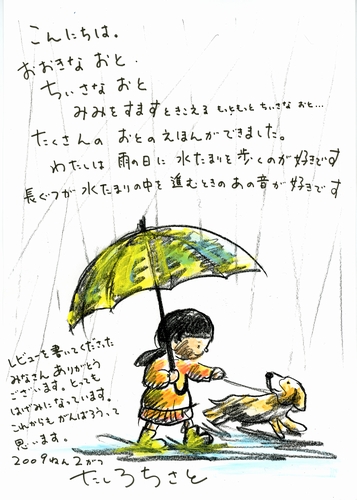 こんにちは。
おおきな おと.
ちいさな おと
みみをすますときこえる もっともっと ちいさな おと…
たくさんの おとのえほんができました。
わたしは 雨の日に 水たまりを 歩くのが好きです
長ぐつが 水たまりの中を 進むときの あの音が 好きです
レビューを書いてくださった
みなさん ありがとう
ございます。とっても
はげみになっています。
これからも がんばろう、って
思います。
2009ねん 2がつ
たしろちさと